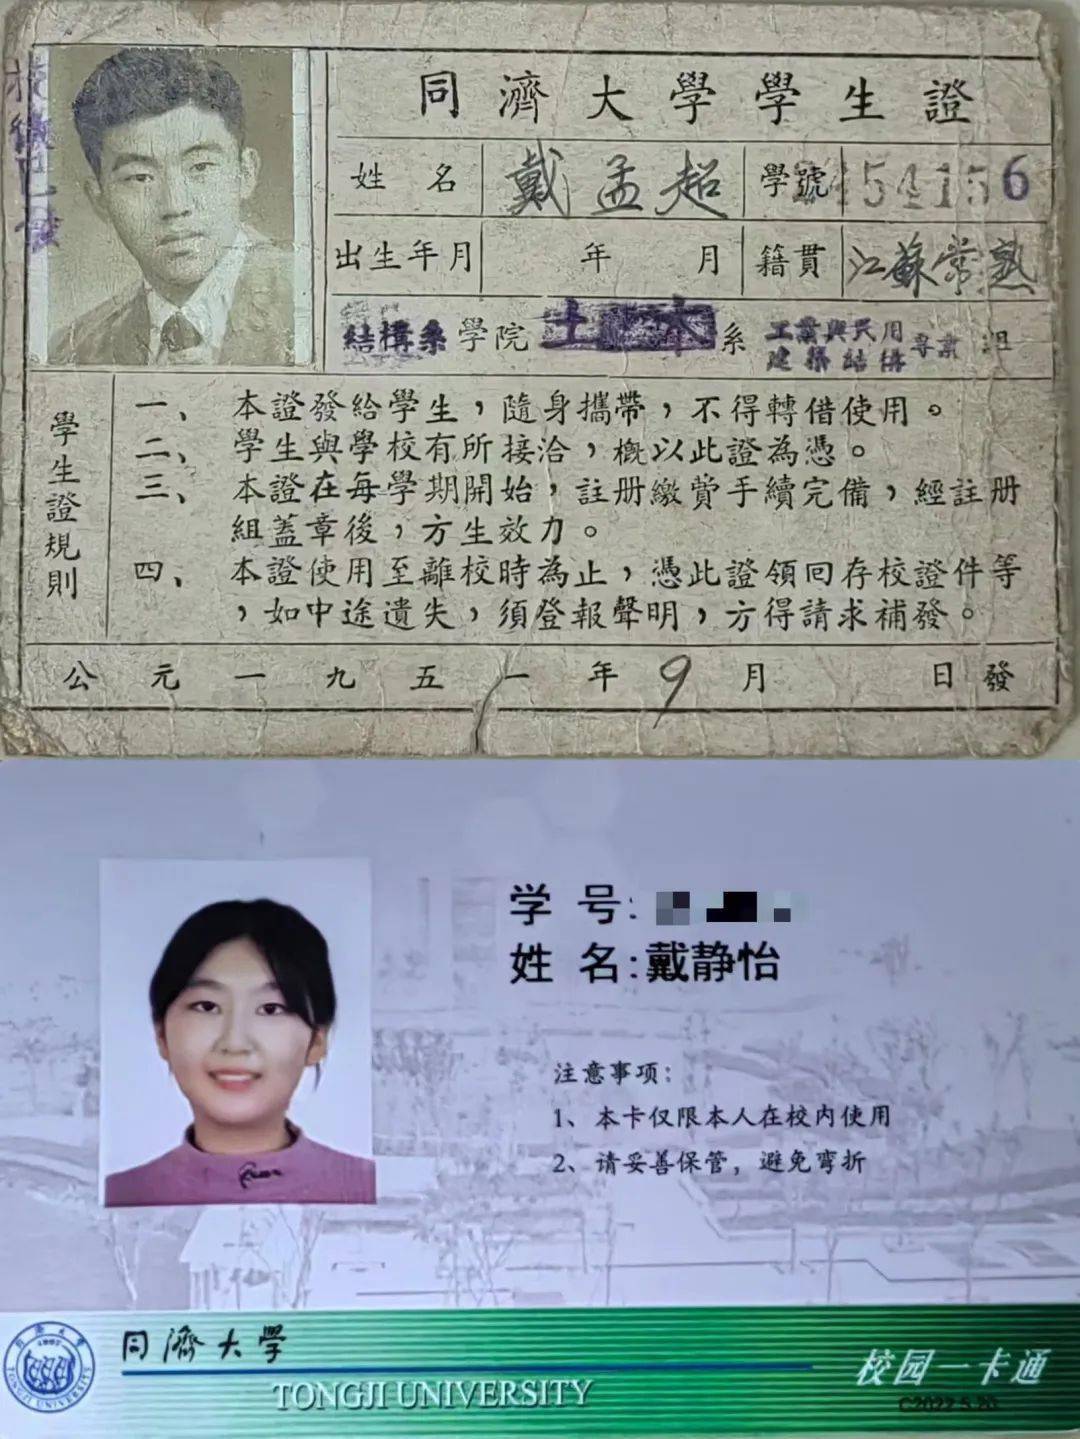 同濟大學學生證
姓名 戴孟超 學號 5415 6
出生年月 年 月 籍貫 江蘇常熟
結構系 學院 土木 系 工業與民用建築結構 專業 組
校徽已發
學生證規則
一、本證發給學生，隨身攜帶，不得轉借使用。
二、學生與學校有所接洽，概以此證為憑。
三、本證在每學期開始，註册繳費手續完備，經註册
組蓋章後，方生效力。
四、本證使用至離校時為止，憑此證領回存校證件等
，如中途遺失，須登報聲明，方得請求補發。
公元一九五一年9月 日發
学号:
姓名:戴静怡
注意事项:
1、本卡仅限本人在校内使用
2、请妥善保管，避免弯折
同濟大學
TONGJI UNIVERSITY
校园一卡通
C2022.5.20
TONGJI UNIVERSITY